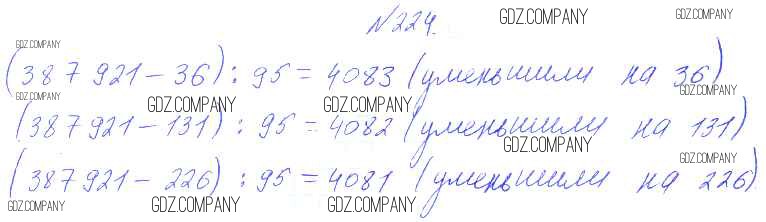 №224.
(387921-36):95=4083 (уменьшили на 36)
(387921-131):95=4082 (уменьшили на 131)
(387921-226):95=4081 (уменьшили на 226)
GDZ.COMPANY
GDZ.COMPANY
GDZ.COMPANY
GDZ.COMPANY
GDZ.COMPANY
GDZ.COMPANY
GDZ.COMPANY
GDZ.COMPANY
GDZ.COMPANY
GDZ.COMPANY
GDZ.COMPANY
GDZ.COMPANY
GDZ.COMPANY